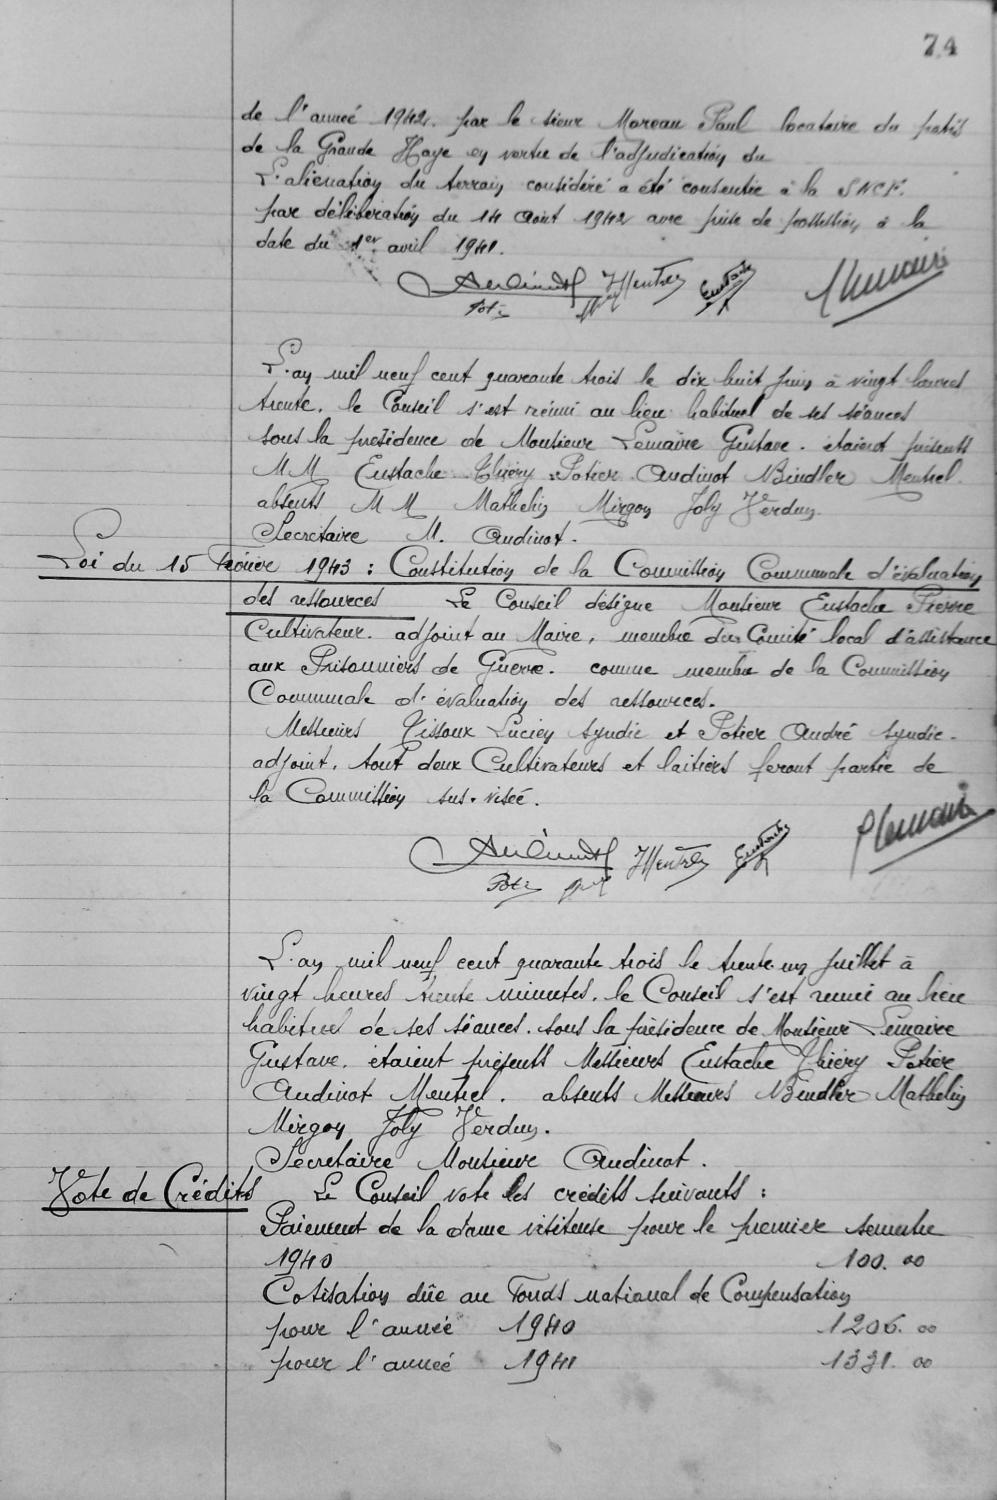 74
de l'année 1942. par le sieur Moreau Paul locataire du patis
de la Grande Haye en vertu de l'adjudication du
L'aliénation du terrain considéré a été consentie à la SNCF.
par délibération du 14 Août 1942 avec prise de possession à la
date du 1er avril 1941.
Audinot JMentrel Eustache Lemaire
Poti
L'an mil neuf cent quarante trois le dix huit juin à vingt heures
trente. le Conseil s'est réuni au lieu habituel de ses séances
sous la présidence de Monsieur Lemaire Gustave. étaient présents
MM Eustache Thiéry Potier Audinot Bindler Mentrel.
absents MM Mathelin Mirgon Joly Verdun.
Secrétaire M. Audinot.
Loi du 15 Février 1943 : Constitution de la Commission Communale d'évaluation
des ressources Le Conseil désigne Monsieur Eustache Pierre
Cultivateur. adjoint au Maire, membre du Comité local d'assistance
aux Prisonniers de Guerre. comme membre de la Commission
Communale d'évaluation des ressources.
Messieurs Tissoux Lucien syndic et Potier André syndic-
adjoint. tout deux Cultivateurs et laitiers feront partie de
la Commission sus-visée.
Audinot JMentrel Eustache Lemaire
Poti
L'an mil neuf cent quarante trois le trente-un juillet à
vingt heures trente minutes. le Conseil s'est réuni au lieu
habituel de ses séances. sous la présidence de Monsieur Lemaire
Gustave. étaient présents Messieurs Eustache Thiéry Potier
Audinot Mentrel. absents Messieurs Bindler Mathelin
Mirgon Joly Verdun.
Secrétaire Monsieur Audinot.
Vote de Crédits Le Conseil vote les crédits suivants :
Paiement de la dame visiteuse pour le premier semestre
1940 100.00
Cotisation dûe au Fonds national de Compensation
pour l'année 1940 1206.00
pour l'année 1941 1331.00